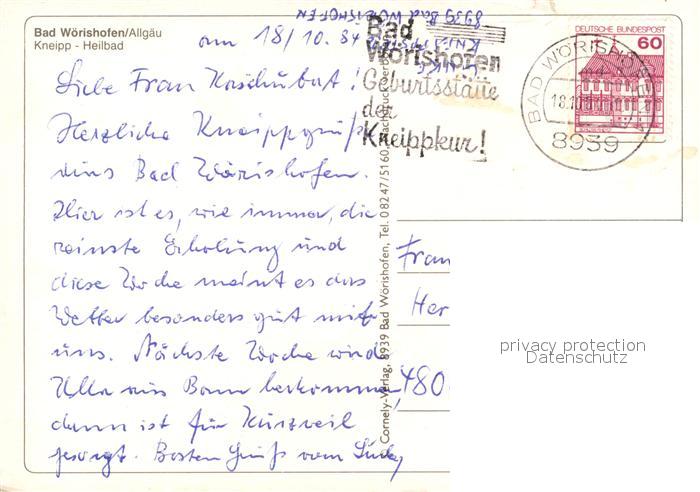 Bad Wörishofen/Allgäu
Kneipp - Heilbad
am 18/10.84
Liebe Frau Kaschubat!
Herzliche Kneippgrüße
aus Bad Wörishofen.
Hier ist es, wie immer, die
reinste Erholung und
diese Woche meint es das
Wetter besonders gut mit
uns. Nächste Woche wird
Ulla aus Bonn herkommen,
dann ist für Kurzweil
gesorgt. Besten Gruß vom Süden
8939 Bad WÖRISHOFEN
Bad
Wörishofen
Geburtsstätte
der
Kneippkur!
BAD WÖRISHOFEN
18.10
8939
DEUTSCHE BUNDESPOST
60
Cornely-Verlag, 8939 Bad Wörishofen, Tel. 08247/5160, Nachdruck verboten
Frau
Her
480
privacy protection
Datenschutz